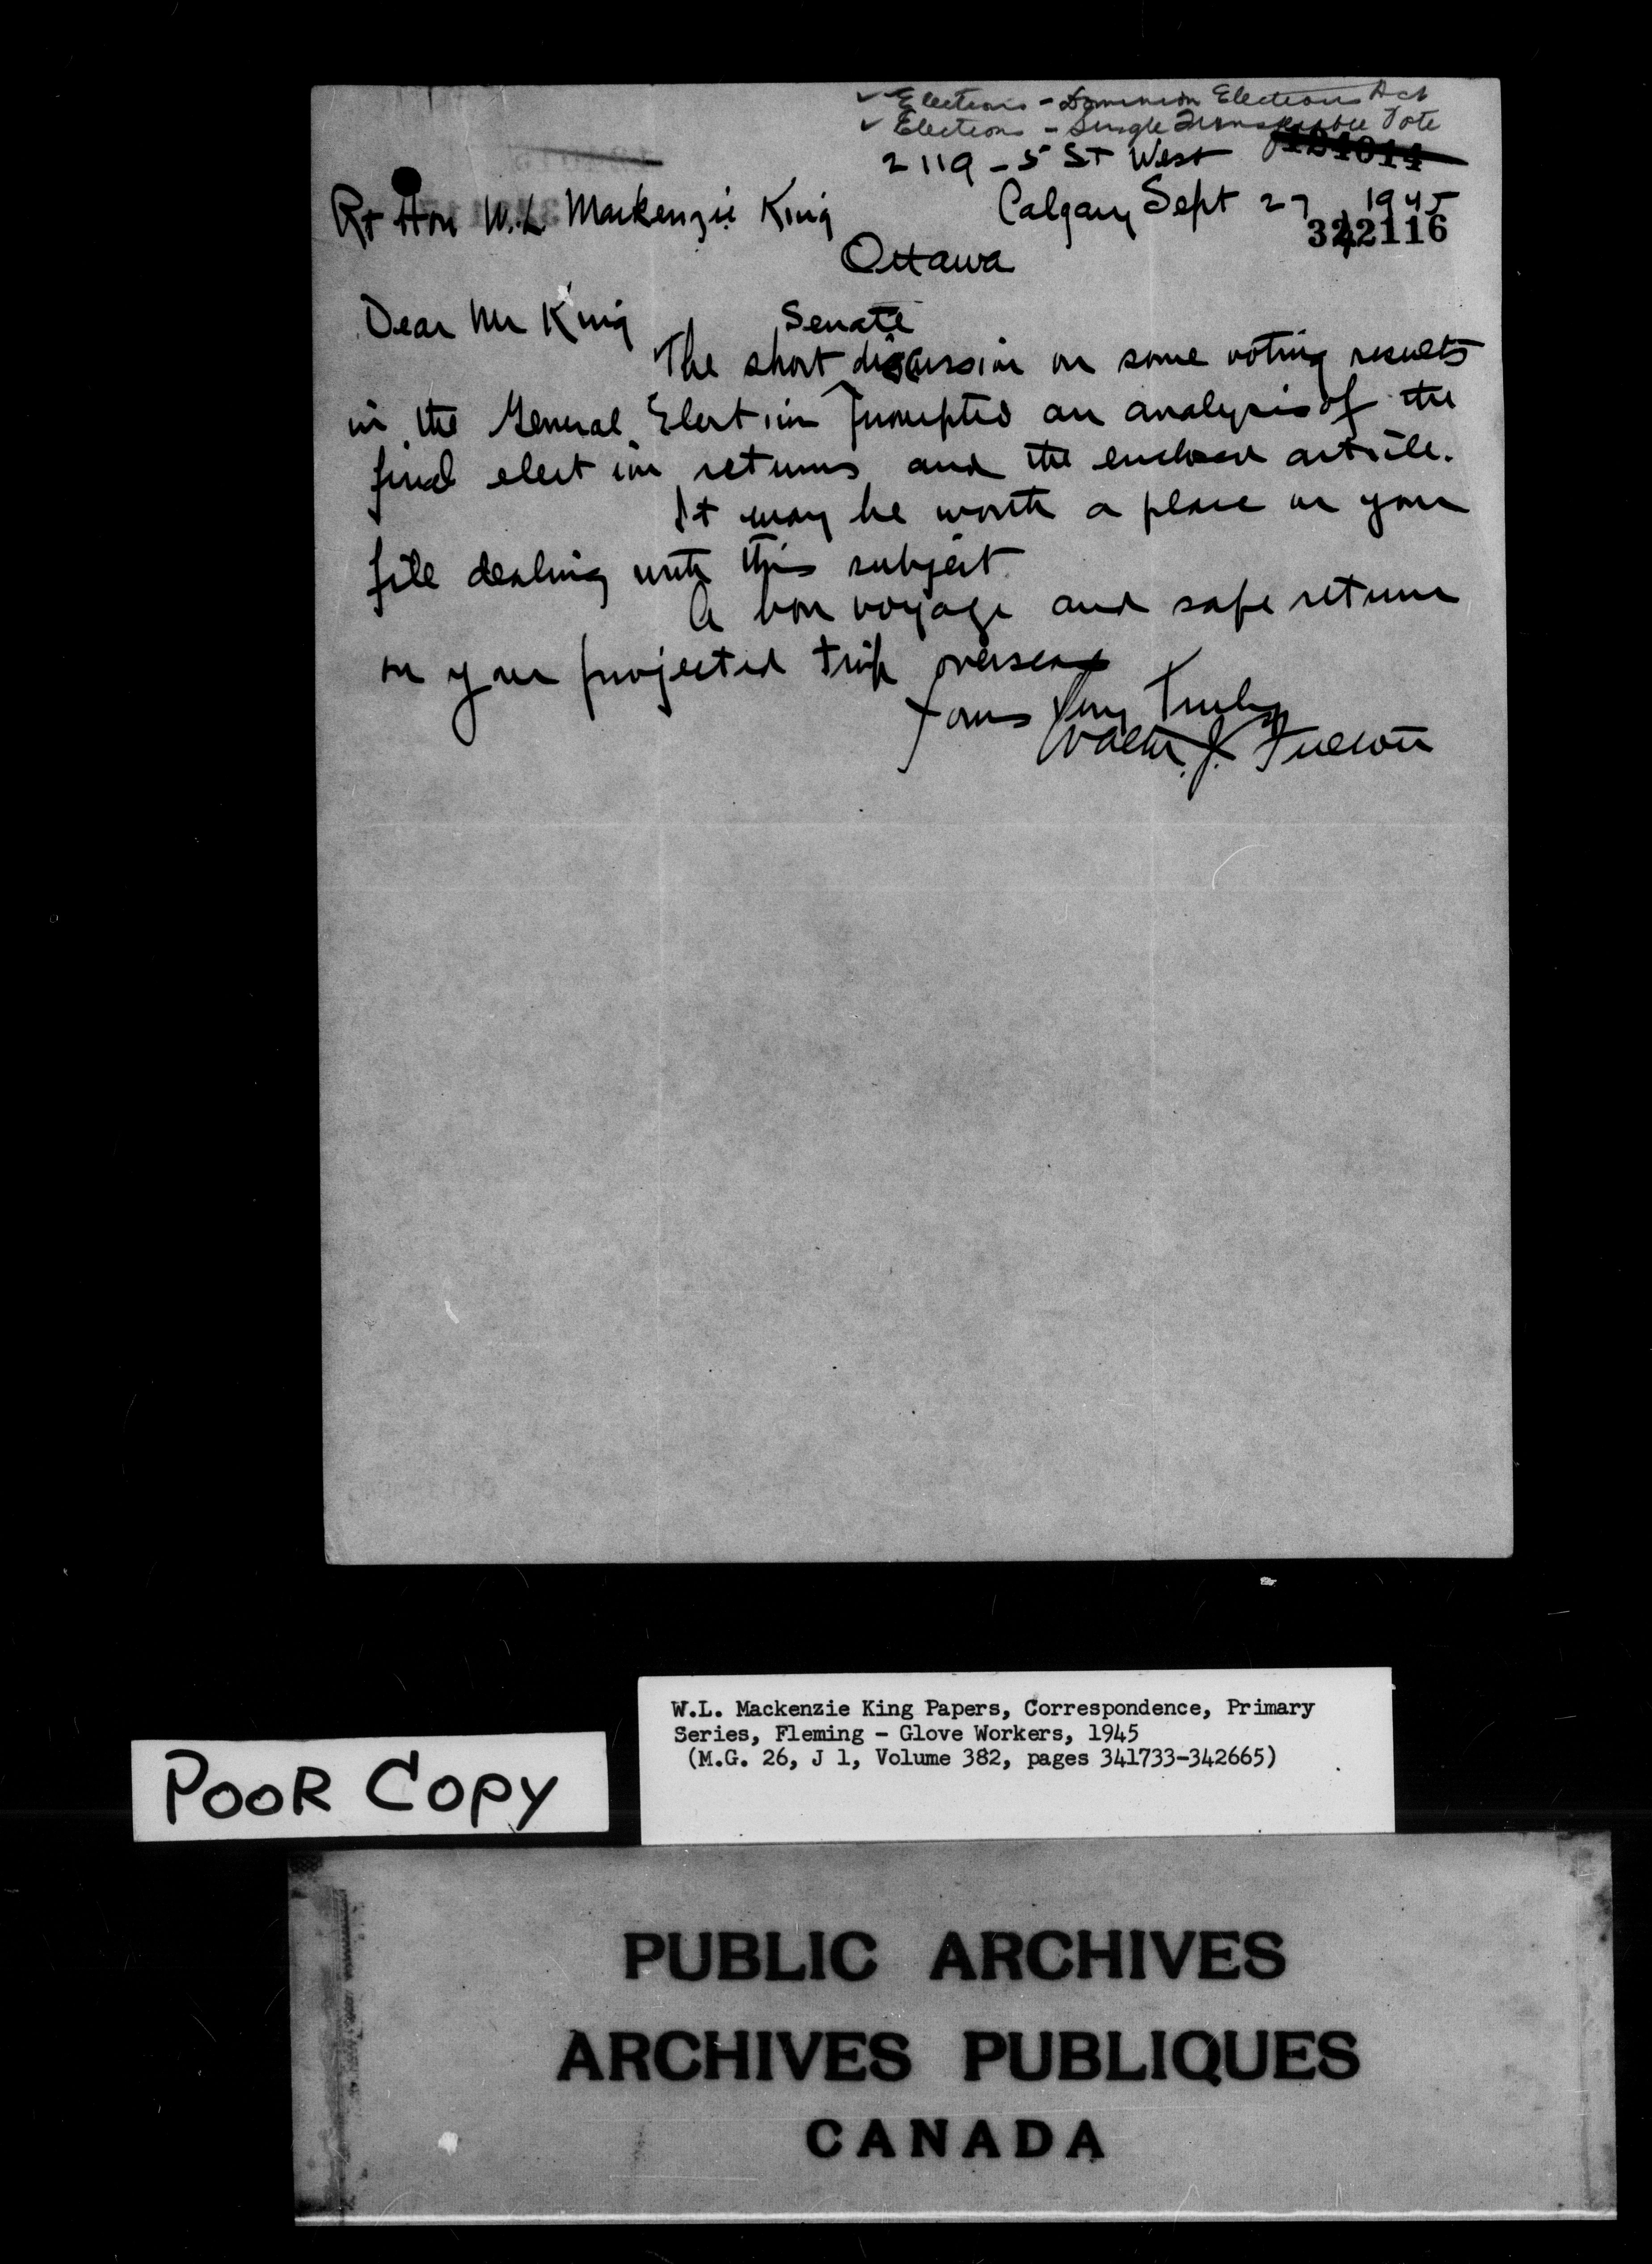 ✓ Elections - Dominion Elections Act
✓ Elections - Single Transferable Vote
2119 - 5 St West
124014
Rt Hon W.L Mackenzie King
Calgary Sept 27 1945
322116
Ottawa
Dear Mr King
Senate
The short discussion on some voting results
in the General Election prompted an analysis of the
final election returns and the enclosed article.
It may be worth a place on your
file dealing with this subject.
A bon voyage and safe return
on your projected trip overseas
Yours Very Truly
Walter J.
W.L. Mackenzie King Papers, Correspondence, Primary
Series, Fleming - Glove Workers, 1945
(M.G. 26, J 1, Volume 382, pages 341733-342665)
POOR COPY
PUBLIC ARCHIVES
ARCHIVES PUBLIQUES
CANADA